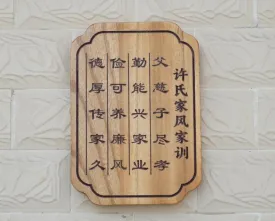 许氏家风家训
父慈子尽孝
勤能兴家业
俭可养廉风
德厚传家久